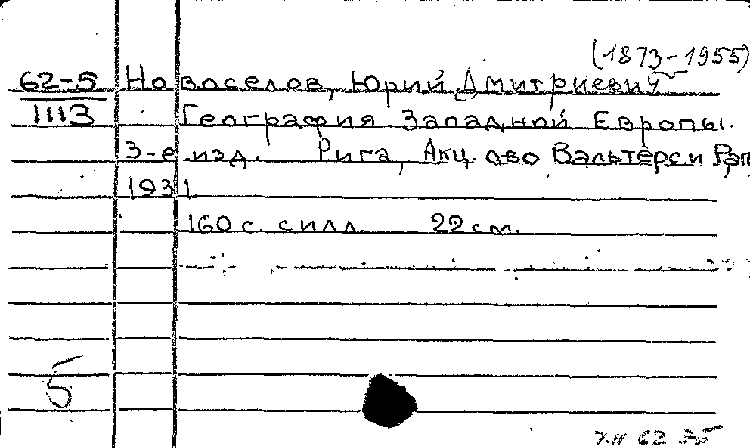 (1873-1955)
62-5 Новоселов, Юрий Дмитриевич
1113 География Западной Европы.
3-е изд. Рига, Акц. о-во Вальтерс и Рап
1931
160 с. с илл. 22 см.
5
62